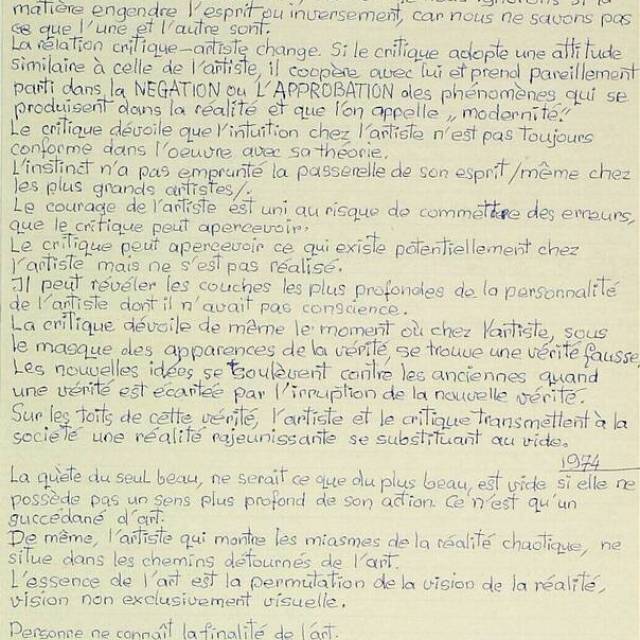 matière engendre l'esprit ou inversement, car nous ne savons pas
ce que l'une et l'autre sont.
La relation critique–artiste change. Si le critique adopte une attitude
similaire à celle de l'artiste, il coopère avec lui et prend pareillement
parti dans la NEGATION ou L'APPROBATION des phénomènes qui se
produisent dans la réalité et que l'on appelle „modernité."
Le critique dévoile que l'intuition chez l'artiste n'est pas toujours
conforme dans l'oeuvre avec sa théorie.
L'instinct n'a pas emprunté la passerelle de son esprit /même chez
les plus grands artistes/.
Le courage de l'artiste est uni au risque de commettre des erreurs,
que le critique peut apercevoir.
Le critique peut apercevoir ce qui existe potentiellement chez
l'artiste mais ne s'est pas réalisé.
Il peut révéler les couches les plus profondes de la personnalité
de l'artiste dont il n'avait pas conscience.
La critique dévoile de même le moment où chez l'artiste, sous
le masque des apparences de la vérité, se trouve une vérité fausse,
Les nouvelles idées se soulèvent contre les anciennes quand
une vérité est écartée par l'irruption de la nouvelle vérité.
Sur les toits de cette vérité, l'artiste et le critique transmettent à la
société une réalité rajeunissante se substituant au vide.
1974
La quète du seul beau, ne serait ce que du plus beau, est vide si elle ne
possède pas un sens plus profond de son action. Ce n'est qu'un
succédané d'art.
De même, l'artiste qui montre les miasmes de la réalité chaotique, ne
situe dans les chemins détournés de l'art.
L'essence de l'art est la permutation de la vision de la réalité,
vision non exclusivement visuelle.
Personne ne connaît la finalité de l'art.